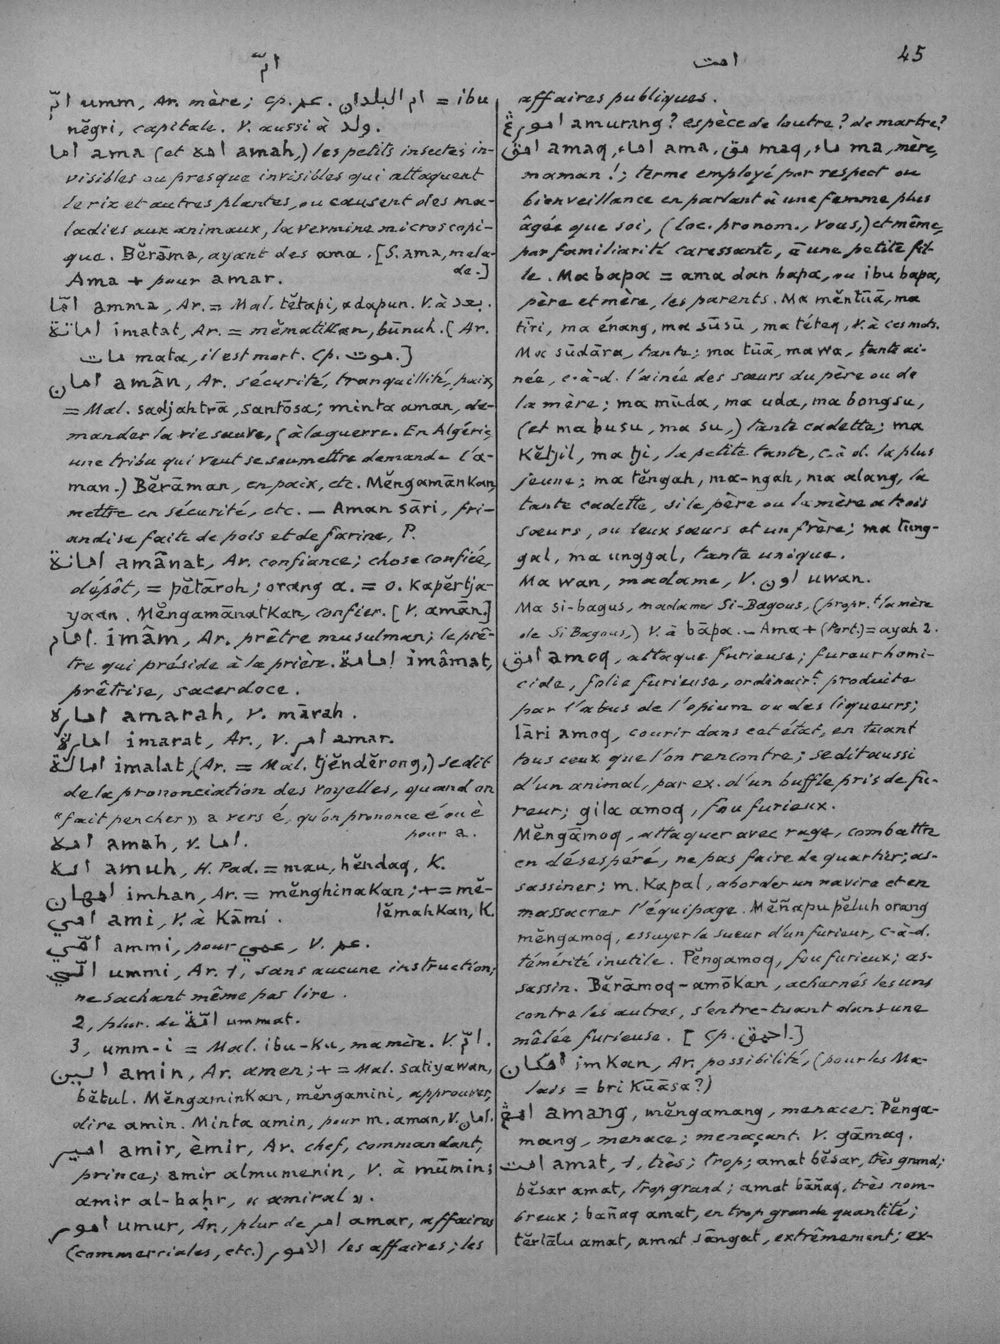 امّ
امت
45
امّ umm, Ar. mère; cp. عم. ام البلدان = ibu
nĕgri, capitale. V. aussi à ولد.
اما ama (et امه amah,) les petits insectes in-
visibles ou presque invisibles qui attaquent
le riz et autres plantes, ou causent des ma-
ladies aux animaux, la vermine microscopi-
que. Bĕrāma, ayant des ama. [S. ama, mala-
de.]
Ama + pour amar.
امّا amma, Ar. = Mal. tĕtapi, adapun. V. à بعد.
اماتة imatat, Ar. = mĕmatikan, būnuh. [Ar.
مات mata, il est mort. Cp. موت.]
امان amân, Ar. sécurité, tranquillité, paix,
= Mal. sadjahtrā, santōsa; minta aman, de-
mander la vie sauve, (à la guerre. En Algérie,
une tribu qui veut se soumettre demande l'a-
man.) Bĕrāman, en paix, etc. Mĕngamānkan,
mettre en sécurité, etc. — Aman sāri, fri-
andise faite de pois et de farine, P.
امانة amânat, Ar. confiance; chose confiée,
dépôt, = pĕtāroh; orang a. = o. kapĕrtja-
yaan. Mĕngamānatkan, confier. [V. amān.]
امام imâm, Ar. prêtre musulman; le prê-
tre qui préside à la prière. امامة imâmat,
prêtrise, sacerdoce.
اماره amarah, V. mārah.
امارة imarat, Ar., V. امر amar.
امالة imalat, (Ar. = Mal. tjĕndĕrong,) se dit
de la prononciation des voyelles, quand on
«fait pencher» a vers é, qu'on prononce é ou è
pour a.
امه amah, V. اما.
امه amuh, H. Pad. = mau, hĕndaq, K.
امهان imhan, Ar. = mĕnghinakan; + = mĕ-
lĕmahkan, K.
امي ami, V. à Kāmi.
امّي ammi, pour عمي, V. عم.
امّي ummi, Ar. 1, sans aucune instruction,
ne sachant même pas lire.
2, plur. de امّة ummat.
3, umm-i = Mal. ibu-ku, ma mère. V. امّ.
امين amin, Ar. amen; + = Mal. satiyawan,
bĕtul. Mĕngaminkan, mĕngamini, approuver,
dire amin. Minta amin, pour m. aman, V. امان.
امير amir, èmir, Ar. chef, commandant,
prince; amir almumenin, V. à mūmin;
amir al-baḥr, «amiral».
امور umur, Ar., plur de امر amar, affaires
(commerciales, etc.) الامور les affaires; les
affaires publiques.
امورڠ amurang? espèce de loutre? de martre?
امق amaq, اماء ama, مق maq, ماء ma, mère,
maman!; terme employé par respect ou
bienveillance en parlant à une femme plus
âgée que soi, (loc. pronom., vous,) et même,
par familiarité caressante, à une petite fil-
le. Ma bapa = ama dan bapa, ou ibu bapa,
père et mère, les parents. Ma mĕntūā, ma
tīri, ma énang, ma sūsū, ma téteq, V. à ces mots.
Ma sūdāra, tante; ma tūā, ma wa, tante aî-
née, c-à-d. l'aînée des sœurs du père ou de
la mère; ma mūda, ma uda, ma bongsu,
(et ma busu, ma su,) tante cadette; ma
Kĕtjil, ma tji, la petite tante, c.à d. la plus
jeune; ma tĕngah, ma-ngah, ma alang, la
tante cadette, si le père ou la mère a trois
sœurs, ou deux sœurs et un frère; ma tung-
gal, ma unggal, tante unique.
Ma wan, madame, V. اون uwan.
Ma si-bagus, madame Si-Bagous, (propr.t la mère
de Si Bagous,) V. à bāpa. — Ama + (Port.) = ayah 2.
امق amoq, attaque furieuse; fureur homi-
cide, folie furieuse, ordinair.t produite
par l'abus de l'opium ou des liqueurs;
lāri amoq, courir dans cet état, en tuant
tous ceux que l'on rencontre; se dit aussi
d'un animal, par ex. d'un buffle pris de fu-
reur; gila amoq, fou furieux.
Mĕngāmoq, attaquer avec rage, combattre
en désespéré, ne pas faire de quartier; as-
sassiner; m. kapal, aborder un navire et en
massacrer l'équipage. Mĕñapu pĕluh orang
mĕngamoq, essuyer la sueur d'un furieux, c-à-d.
témérité inutile. Pĕngamoq, fou furieux; as-
sassin. Bĕrāmoq-amōkan, acharnés les uns
contre les autres, s'entre-tuant dans une
mêlée furieuse. [Cp. احمق.]
امكان imkan, Ar. possibilité, (pour les Ma-
lais = bri kūāsa?)
امڠ amang, mĕngamang, menacer. Pĕnga-
mang, menace; menaçant. V. gāmaq.
امت amat, 1, très; trop; amat bĕsar, très grand;
bĕsar amat, trop grand; amat bāñaq, très nom-
breux; bañaq amat, en trop grande quantité;
tĕrlālu amat, amat sāngat, extrêmement; ex-